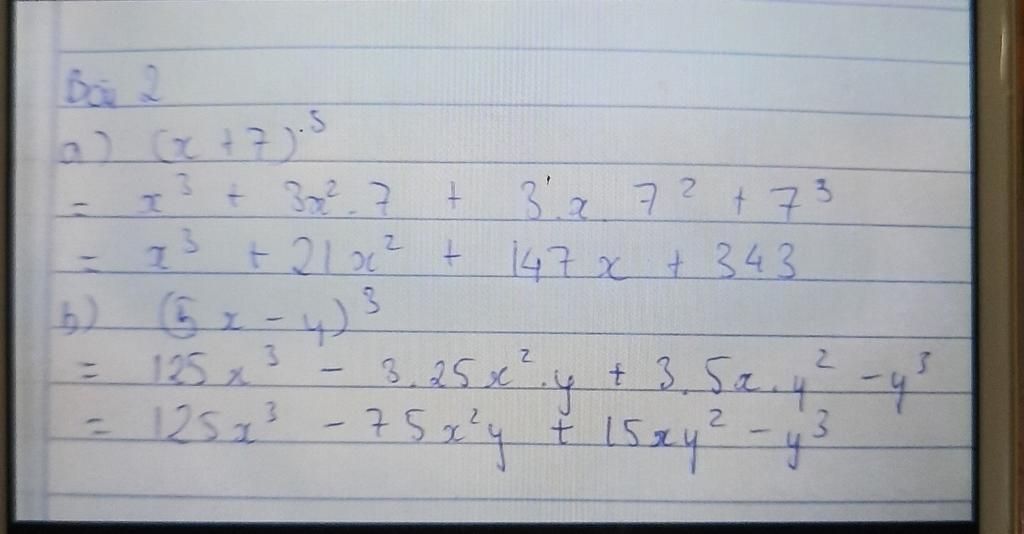 Bài 2
a) (x + 7)³
= x³ + 3x².7 + 3.x.7² + 7³
= x³ + 21x² + 147x + 343
b) (5x - y)³
= 125x³ - 3.25x².y + 3.5x.y² - y³
= 125x³ - 75x²y + 15xy² - y³